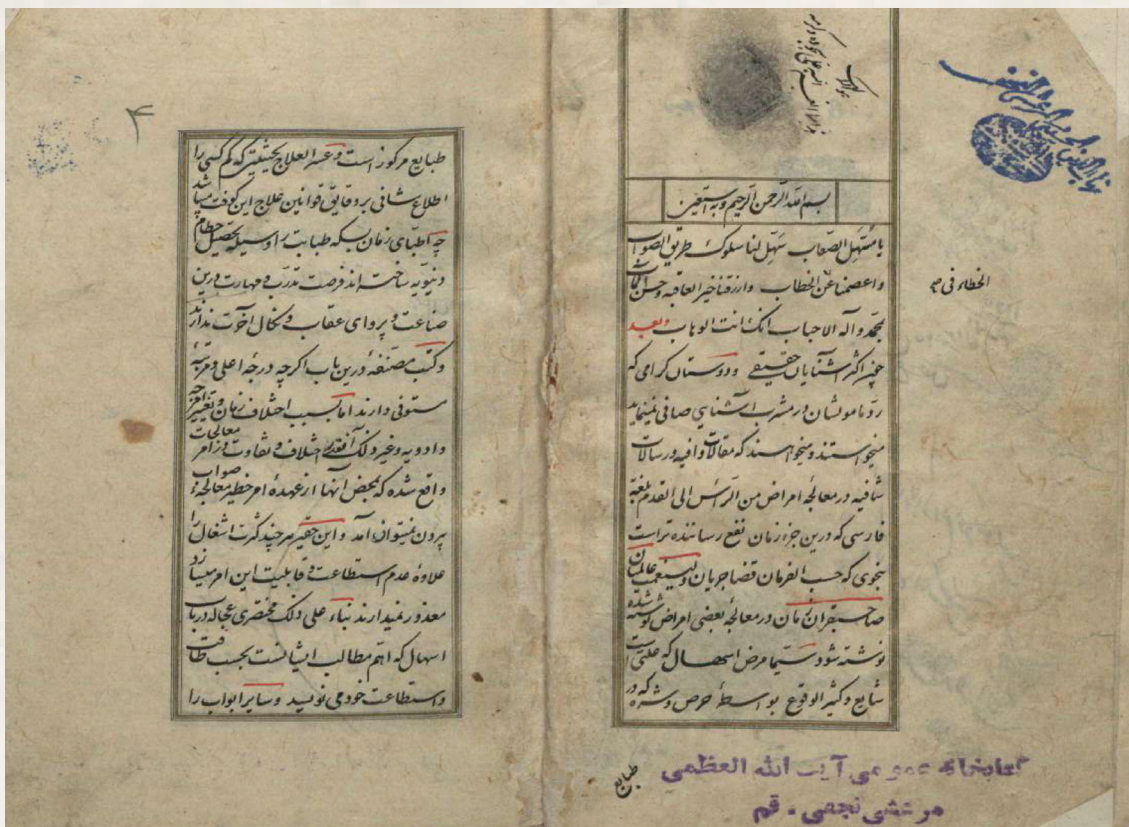 بسم الله الرحمن الرحیم وبه نستعین
یا مسهل الصعاب سهل لنا سلوک طریق الصواب
واعصمنا عن الخطاب وارزقنا خیر العاقبه وحسن المآب
بمحمد وآله الاحباب انک انت الوهاب وبعد
چون اکثر آشنایان حقیقی ودوستان کرامی که
رد مامولشان در مشرب آشنایی صافی نمینماید
میخواستند ومیخواهند که مقالات وافیه ورسالات
شافیه در معالجه امراض من الرأس الی القدم بلغة
فارسی که درین جزء زمان نفع رساننده تر است
بنحوی که حسب الفرمان قضا جریان ولیعهد عالمیان
صاحبقران زمان در معالجهٔ بعضی امراض نوشته شده
نوشته شود سیما مرض اسهال که علتی است
شایع وکثیر الوقوع بواسطهٔ حرص وشره که در
طبایع
الخطاء فی
کتابخانه عمومی آیت الله العظمی
مرعشی نجفی - قم
۴
طبایع مرکوز است وعسر العلاج بحیثیتی که کم کسی را
اطلاع شافی بر دقایق قوانین علاج این کوفت میباشد
چه اطبای زمان بسکه طبابت را وسیله تحصیل حطام
دنیویه ساخته اند فرصت تدرب ومهارت درین
صناعت وپروای عقاب ونکال آخرت ندارند
وکتب مصنفه درین باب اکرچه درجهٔ اعلی ومرتبهٔ
مستوفی دارند اما بسبب اختلاف زمان وتغییر امزجه
وادویه وغیر ذلک آنقدر اختلاف وتفاوت در امر معالجات
واقع شده که بمحض آنها از عهدهٔ امر خطیر معالجهٔ صواب
بیرون نمیتوان آمد واین حقیر هر چند کثرت اشغال را
علاوهٔ عدم استطاعت وقابلیت این امر میسازد
معذور نمیدارند بناء علی ذلک مختصری عجاله در باب
اسهال که اهم مطالب ایشانست بحسب طاقت
واستطاعت خود می نویسد وسایر ابواب را